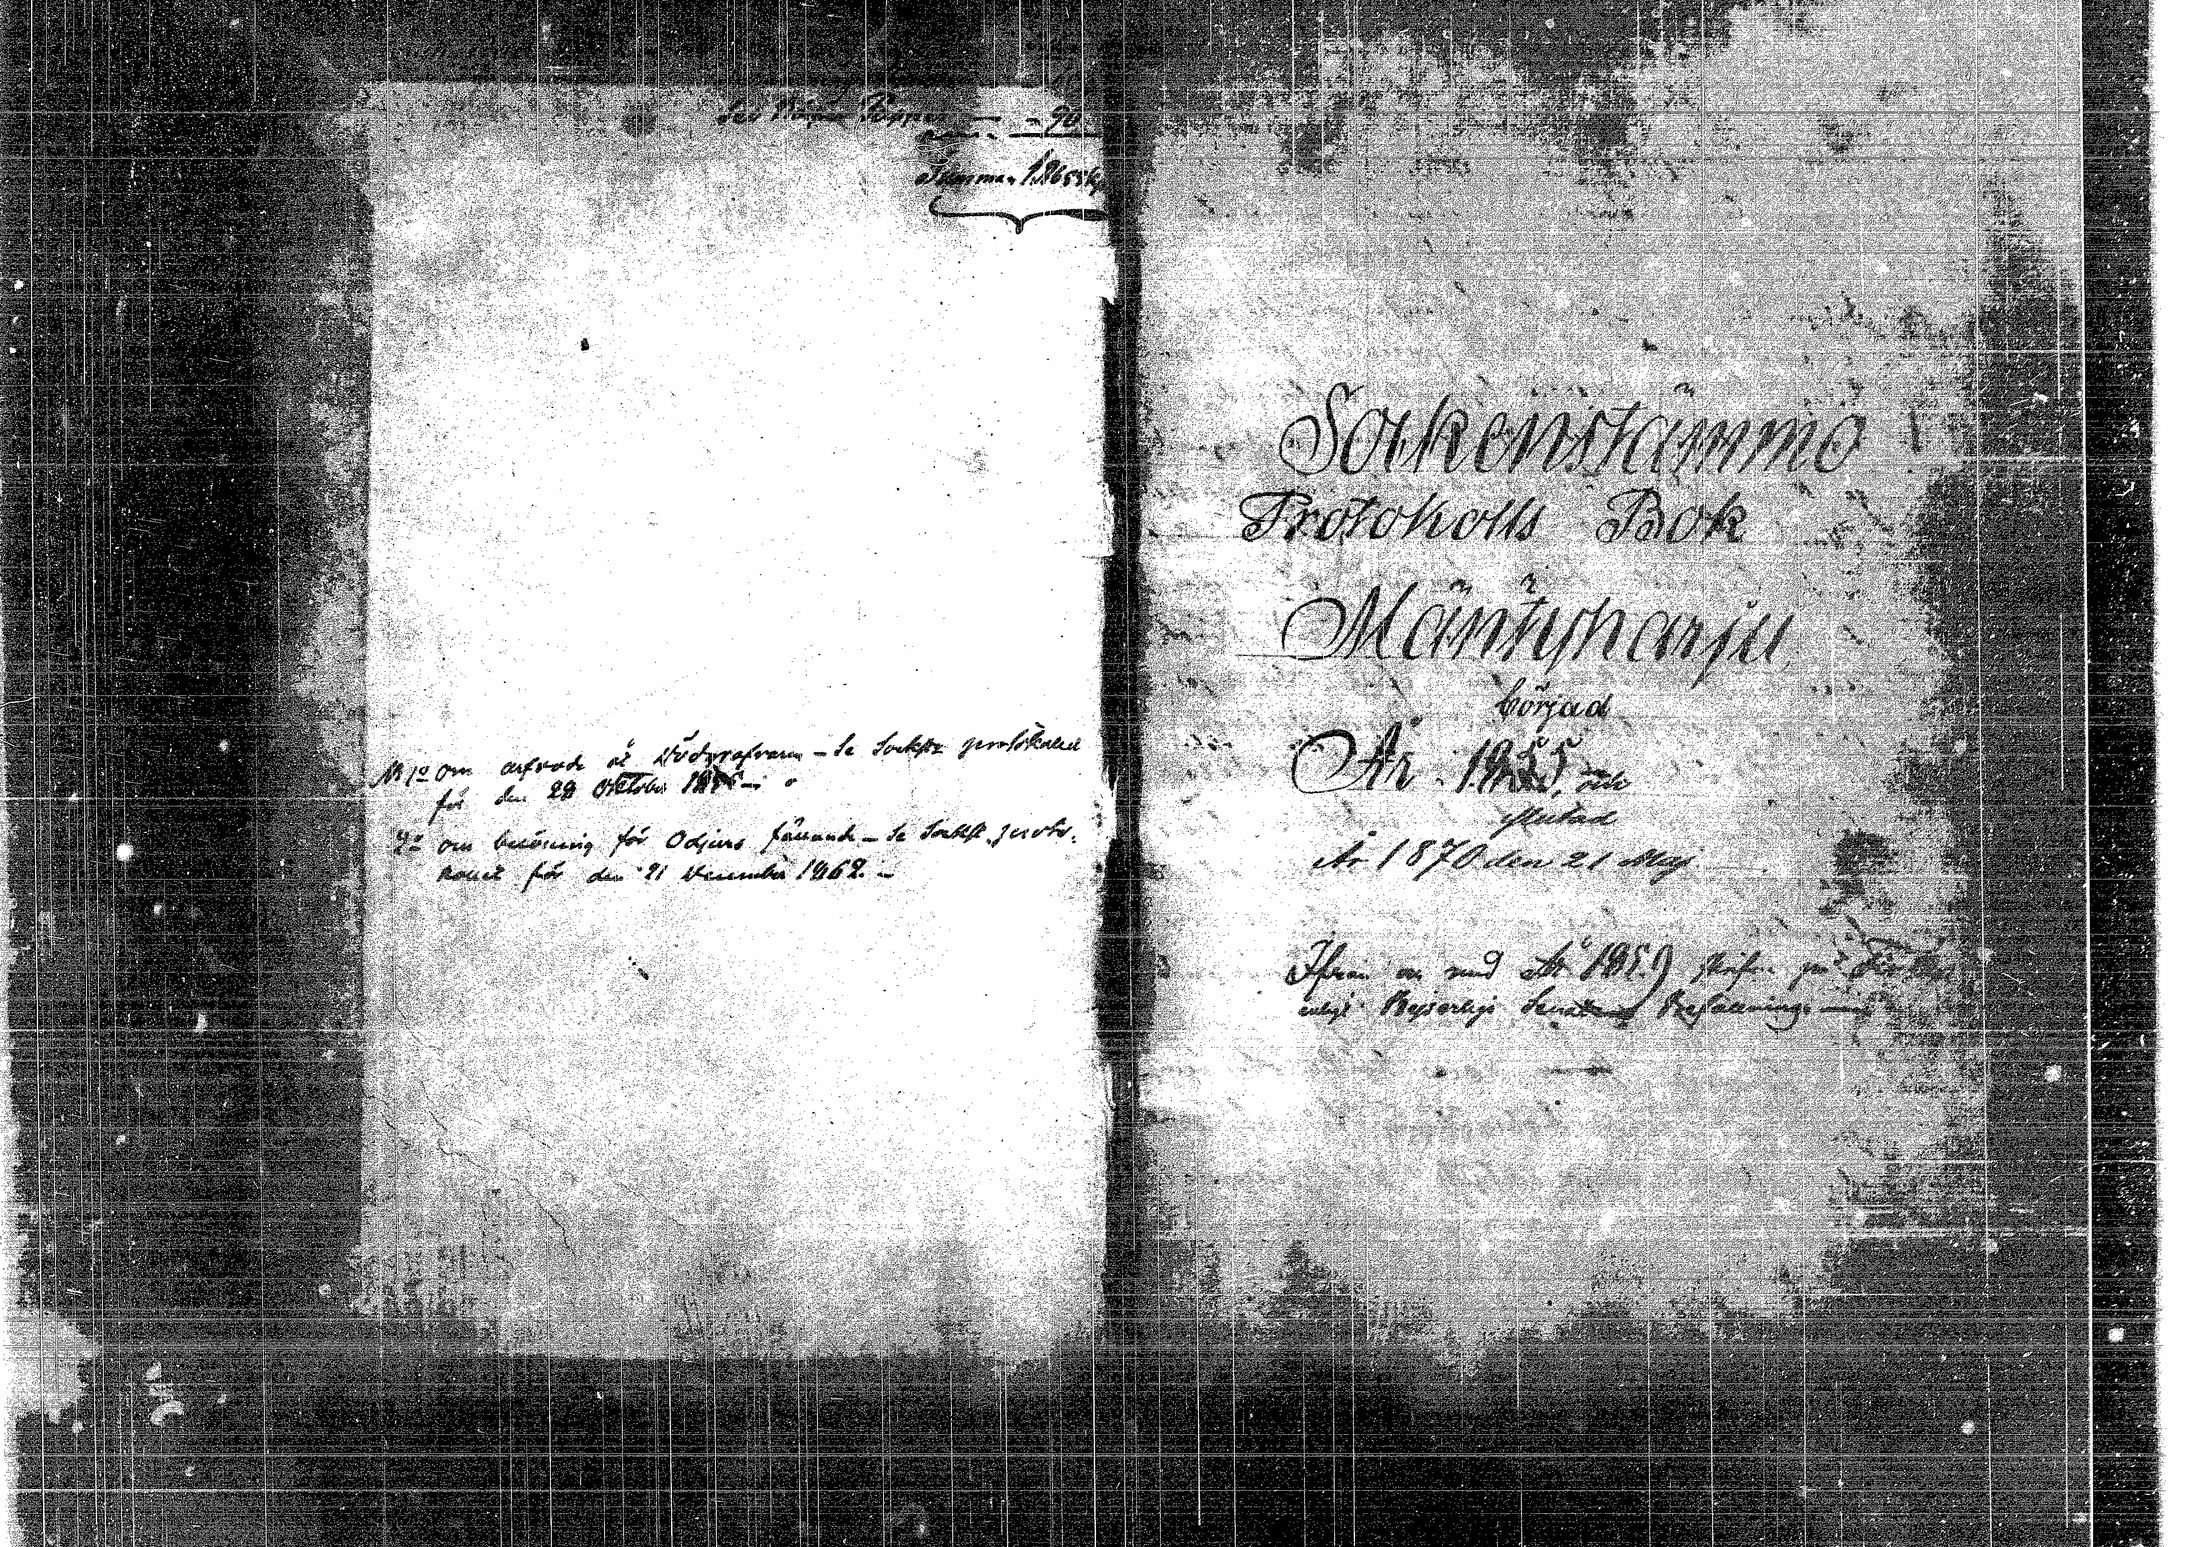 – 90
Summa
N 1º om arfvode åt Dödgräfvaren – Se Sockst protokollet
för den 29 Oktober
2º om belöning för Odjurs fällande – Se Sockst. proto-
kollet för den 21 December 1862. –
Sockenstämmo
Protokolls Bok
Mäntyharju
börjad
År 1855, och
slutad
År 1870 den 21 Maj
Ifrån och med År 1859 skrifna på
enligt Kejserliga Senatens Befallning